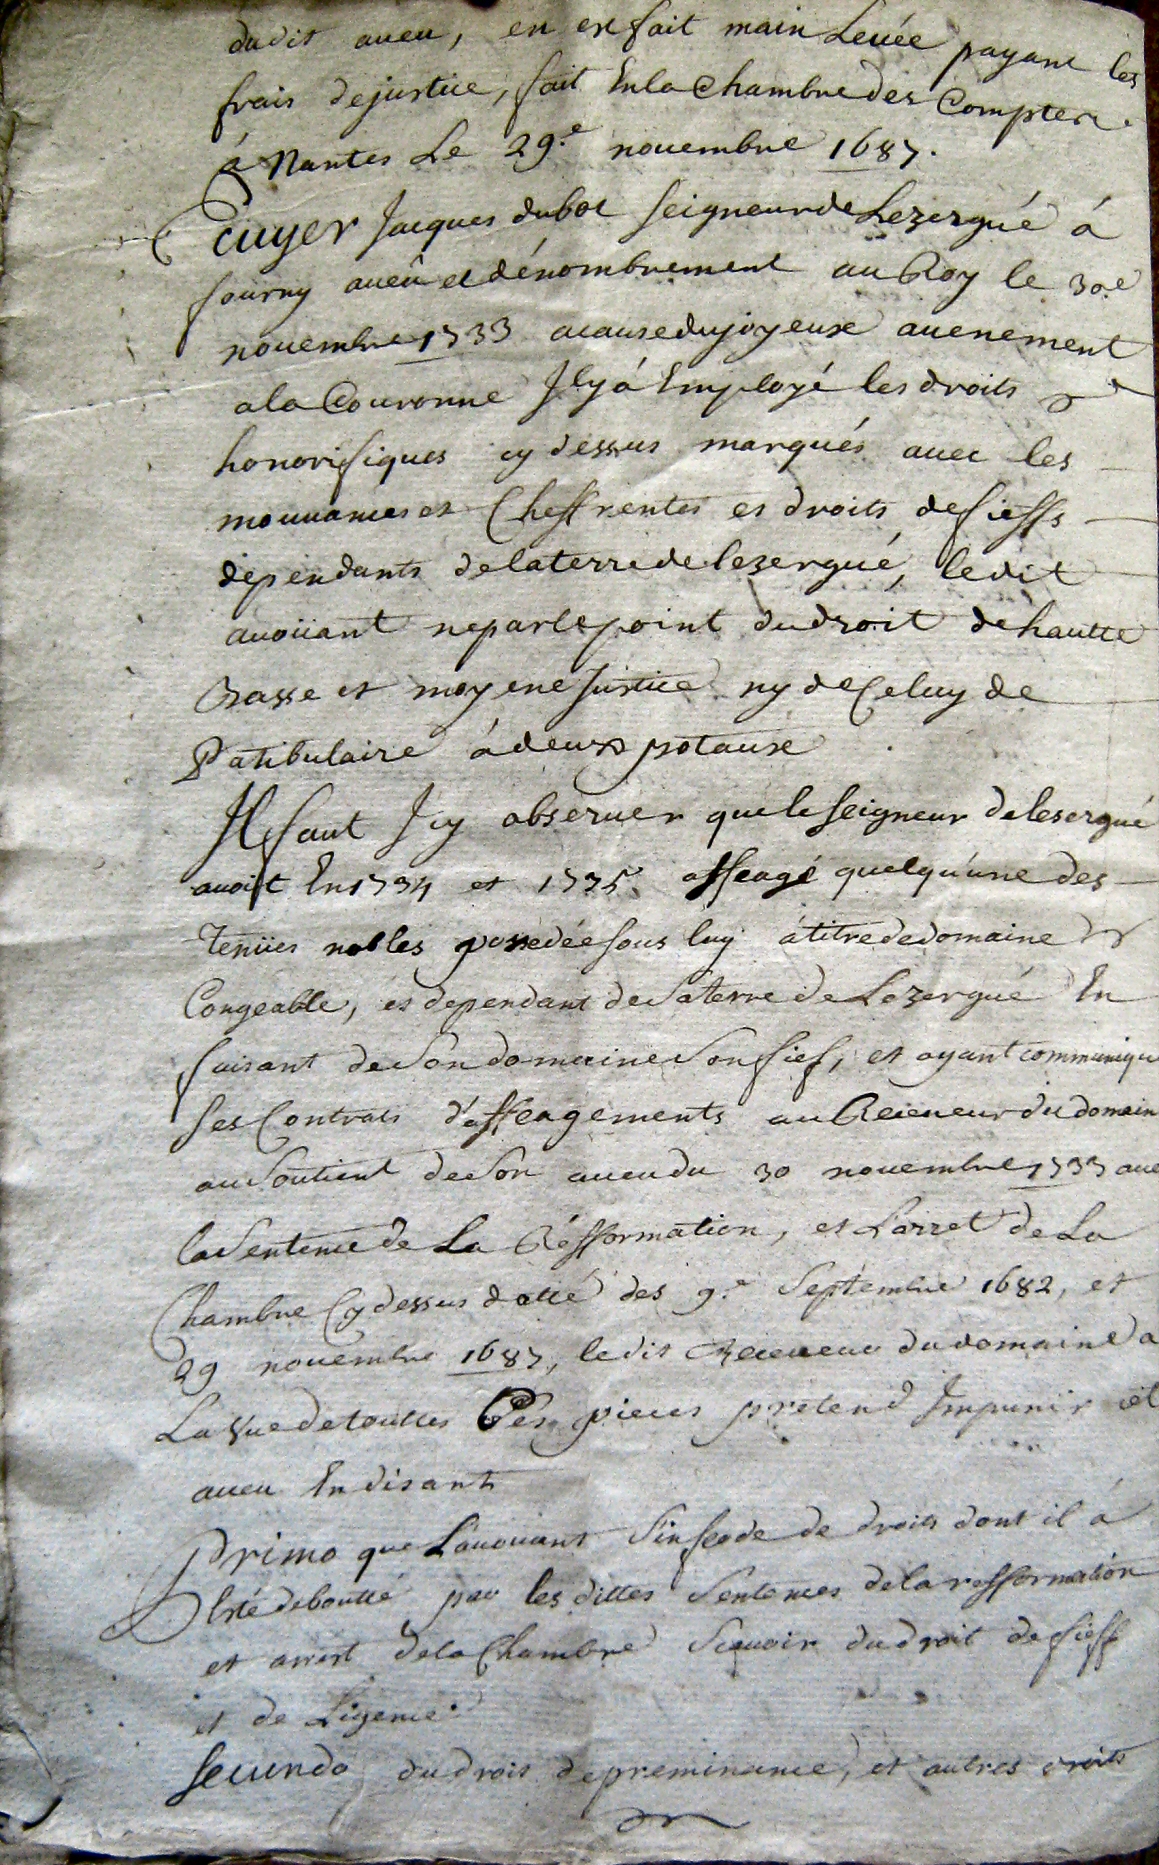 dudit aueu, en ex fait main Leuée payant les
frais de justice, fait En la Chambre des Comptes
á Nantes Le 29.e nouembre 1687.
Ecuyer Jacques dubot seigneur de Lezergué á
fourny aueü et dénombrement au Roy le 30.e
nouembre 1733 a cause du joyeux auenement
a la Couronne Il y á Employé les droits
honorifiques cy dessus marqués auec les
mouuances et Cheffrentes et droits de fieffs
dépendants de la terre de lezergué, le dit
auoüant ne parle point du droit de hautte
Basse et moyene Justice ny de Celuy de
Patibulaire á deux potaux
Il faut Icy obseruer que le seigneur de lesergué
auoit En 1734 et 1735. affeagé quelqu'une des
Tenües nobles possedée sous luy á titre de domaine
Congeable, et dependant de sa terre de Lezergué En
faisant de son domaine son fief, et ayant communiqu
ses Contrats d'affeagements au Receueur du domain
au soutient de son aueu du 30 nouembre 1733 aue
la sentence de La Réfformation, et L'arret de La
Chambre Cy dessus datté des 9.e Septembre 1682, et
29 nouembre 1687, le dit Receueur du domaine a
La Vue de touttes Ces pieces pretend Impunir cet
aueu En disant
Primo que L'auouant s'infeode de droits dont il á
Eté deboutté par les dittes sentences de la refformation
et arret de la Chambre Scauoir du droit de fieff
et de Ligence.
Secundo du droit de preminance, et autres droits